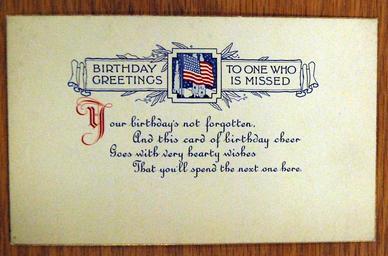 BIRTHDAY GREETINGS TO ONE WHO IS MISSED
Your birthday's not forgotten,
And this card of birthday cheer
Goes with very hearty wishes
That you'll spend the next one here.